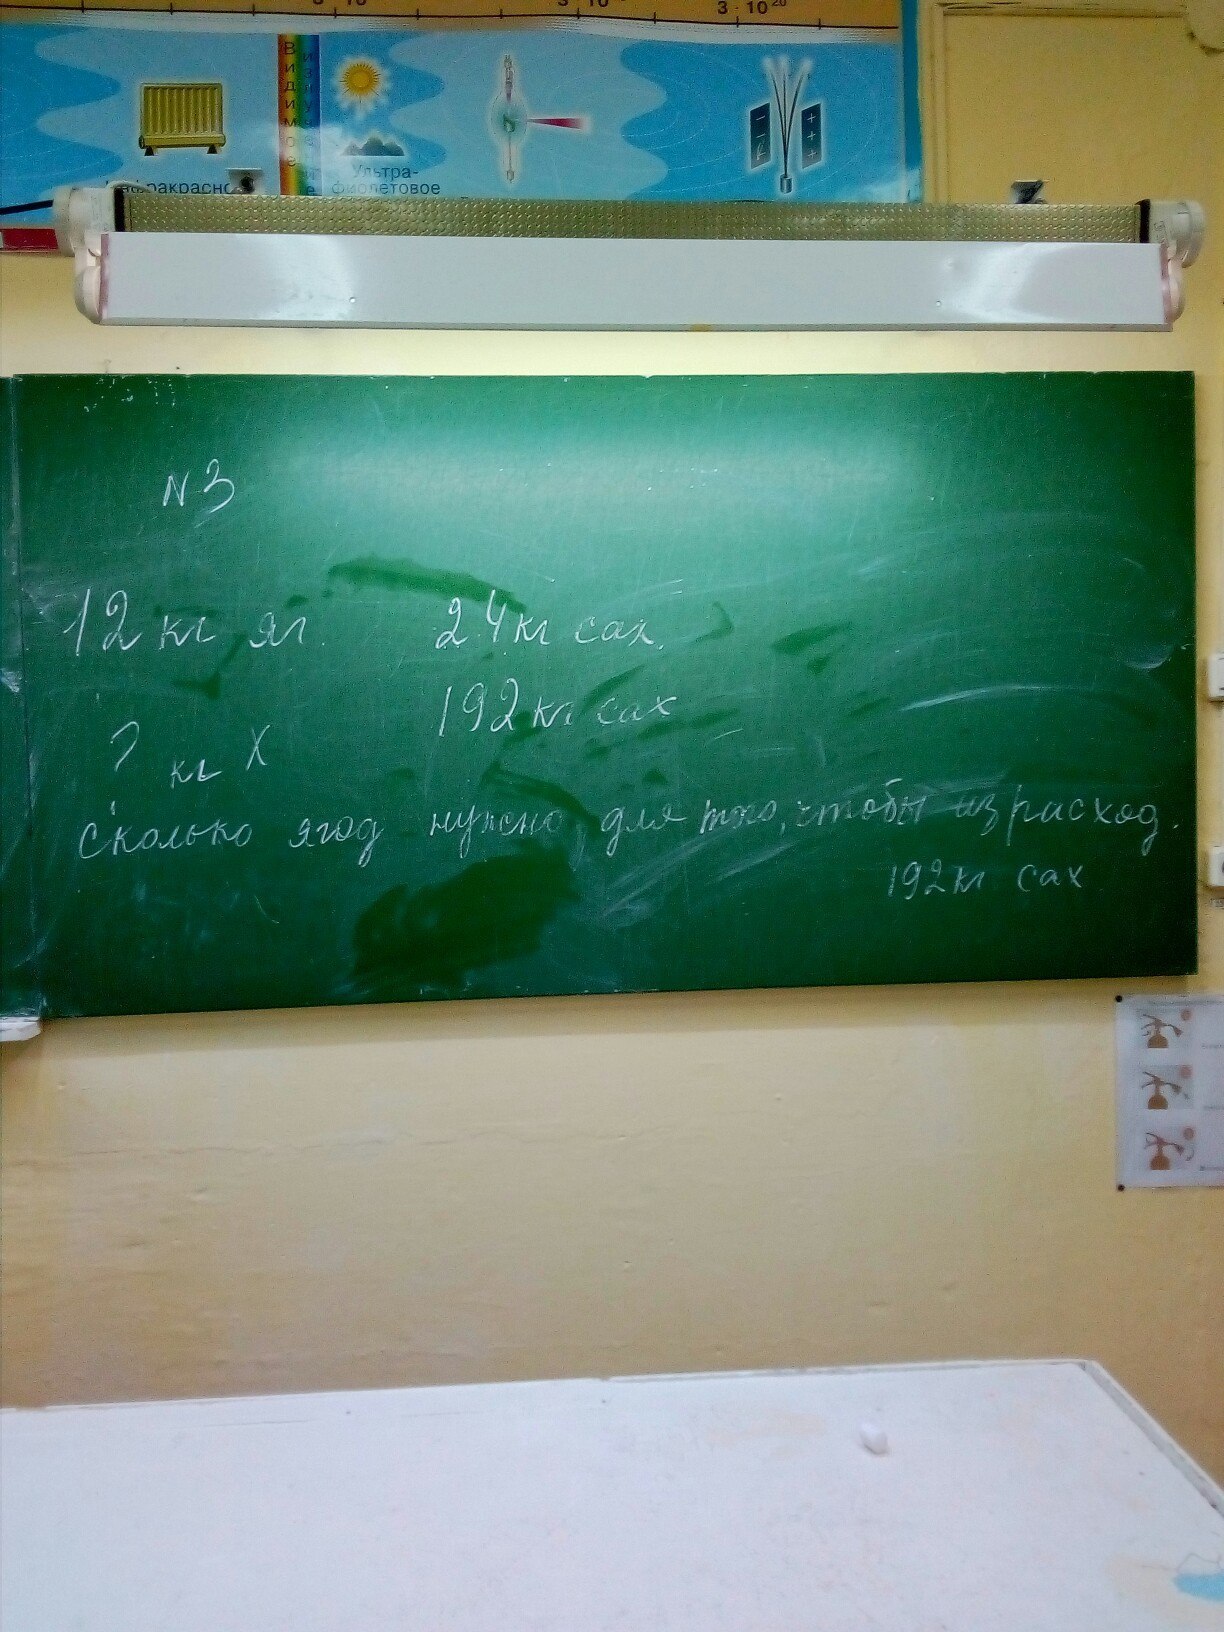 3 · 10²⁰
Видимое
Ультра-
фиолетовое
N 3
12 кг яг. 24 кг сах.
192 кг сах
? кг X
сколько ягод нужно для того, чтобы израсход.
192 кг сах